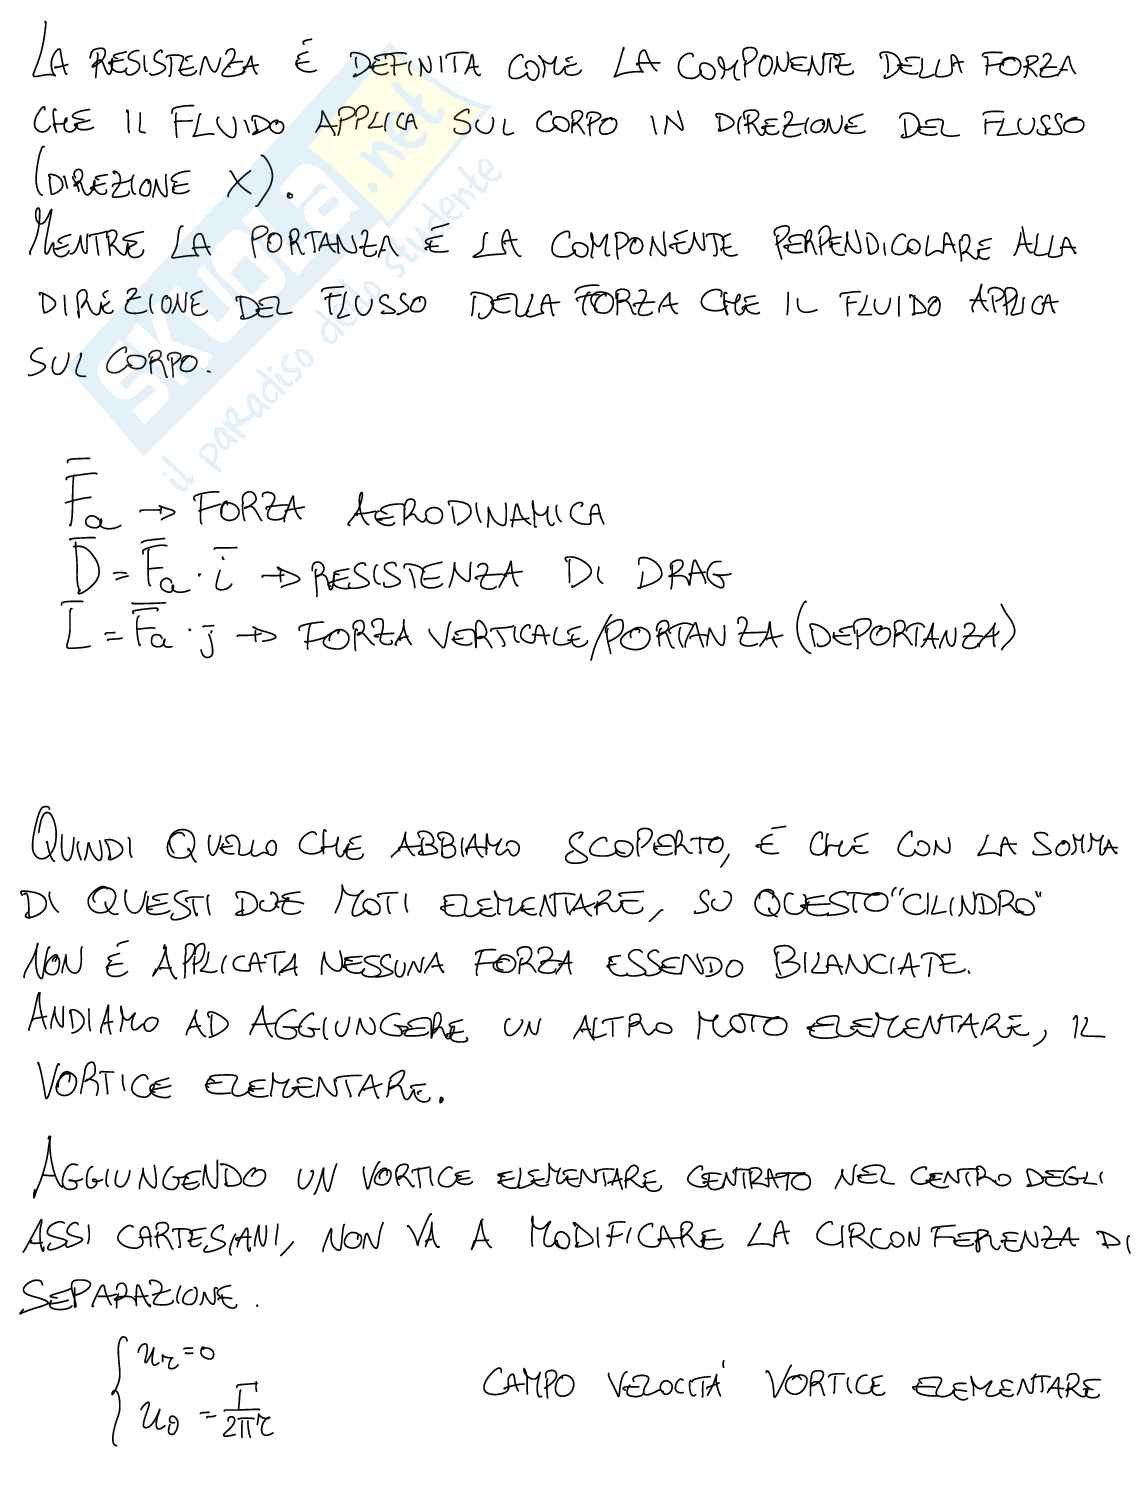 LA RESISTENZA É DEFINITA COME LA COMPONENTE DELLA FORZA
CHE IL FLUIDO APPLICA SUL CORPO IN DIREZIONE DEL FLUSSO
(DIREZIONE X).
MENTRE LA PORTANZA É LA COMPONENTE PERPENDICOLARE ALLA
DIREZIONE DEL FLUSSO DELLA FORZA CHE IL FLUIDO APPLICA
SUL CORPO.
SKUOLA.net
il paradiso dello studente
F̅a → FORZA AERODINAMICA
D̅ = F̅a · i̅ → RESISTENZA DI DRAG
L̅ = F̅a · j̅ → FORZA VERTICALE/PORTANZA (DEPORTANZA)
QUINDI QUELLO CHE ABBIAMO SCOPERTO, É CHE CON LA SOMMA
DI QUESTI DUE MOTI ELEMENTARE, SU QUESTO "CILINDRO"
NON É APPLICATA NESSUNA FORZA ESSENDO BILANCIATE.
ANDIAMO AD AGGIUNGERE UN ALTRO MOTO ELEMENTARE, IL
VORTICE ELEMENTARE.
AGGIUNGENDO UN VORTICE ELEMENTARE CENTRATO NEL CENTRO DEGLI
ASSI CARTESIANI, NON VA A MODIFICARE LA CIRCONFERENZA DI
SEPARAZIONE.
{ ur = 0
uθ = Γ/2πr CAMPO VELOCITÁ VORTICE ELEMENTARE